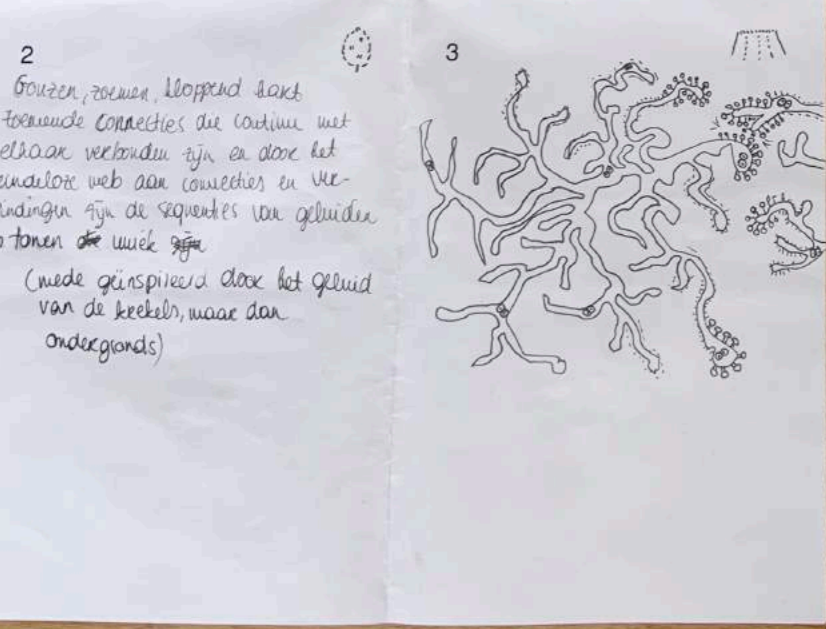 2
Gonzen, zoemen, kloppend hart
zoemende connecties die continu met
elkaar verbonden zijn en door het
eindeloze web aan connecties en ver-
indingen zijn de sequenties van geluiden
tonen uniek
(mede geïnspireerd door het geluid
van de krekels, maar dan
ondergronds)
3